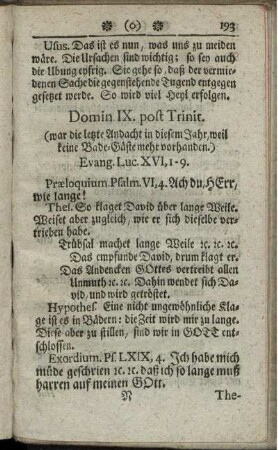 ✻ (o) ✻ 193
Usus. Das ist es nun, was uns zu meiden
wäre. Die Ursachen sind wichtig; so sey auch
die Ubung eyfrig. Sie gehe so, daß der vermie-
denen Sache die gegenstehende Tugend entgegen
gesetzt werde. So wird viel Heyl erfolgen.
Domin. IX. post Trinit.
(war die letzte Andacht in diesem Jahr, weil
keine Bade-Gäste mehr vorhanden.)
Evang. Luc. XVI, 1-9.
Præloquium. Psalm. VI, 4. Ach du, HErr,
wie lange!
Thes. So klaget David über lange Weile.
Weiset aber zugleich, wie er sich dieselbe ver-
trieben habe.
Trübsal machet lange Weile ꝛc. ꝛc. ꝛc.
Das empfunde David, drum klagt er.
Das Andencken GOttes vertreibt allen
Unmuth ꝛc. ꝛc. Dahin wendet sich Da-
vid, und wird getröstet.
Hypothes. Eine nicht ungewöhnliche Kla-
ge ist es in Bädern: die Zeit wird mir zu lange.
Diese aber zu stillen, sind wir in GOTT ent-
schlossen.
Exordium. Ps. LXIX, 4. Ich habe mich
müde geschrien ꝛc. ꝛc. daß ich so lange muß
harren auf meinen GOtt.
N The-